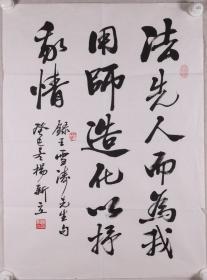 法先人而為我
用師造化以抒
我情
錄王雪濤先生句
癸巳吳楊新立